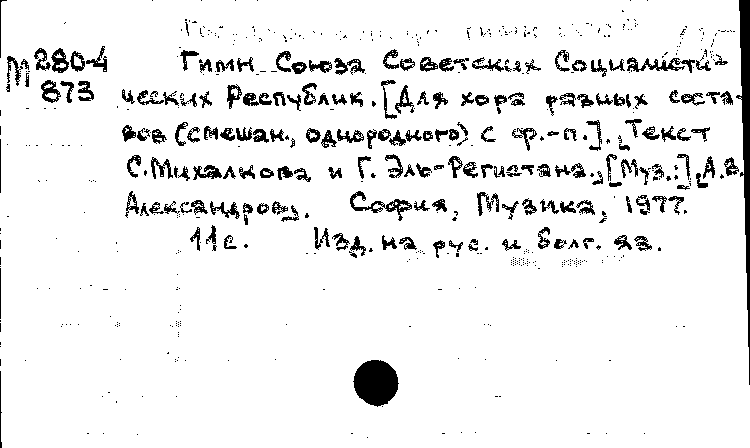 Государственный гимн СССР
М 280-4 Гимн Союза Советских Социалисти-
873 ческих Республик. [Для хора разных соста-
вов (смешан., однородного) с ф.-п.]. [Текст
С. Михалкова и Г. Эль-Регистана.], [Муз.:] [А.В.
Александров]. София, Музика, 1977.
11 с. Изд. на рус. и болг. яз.